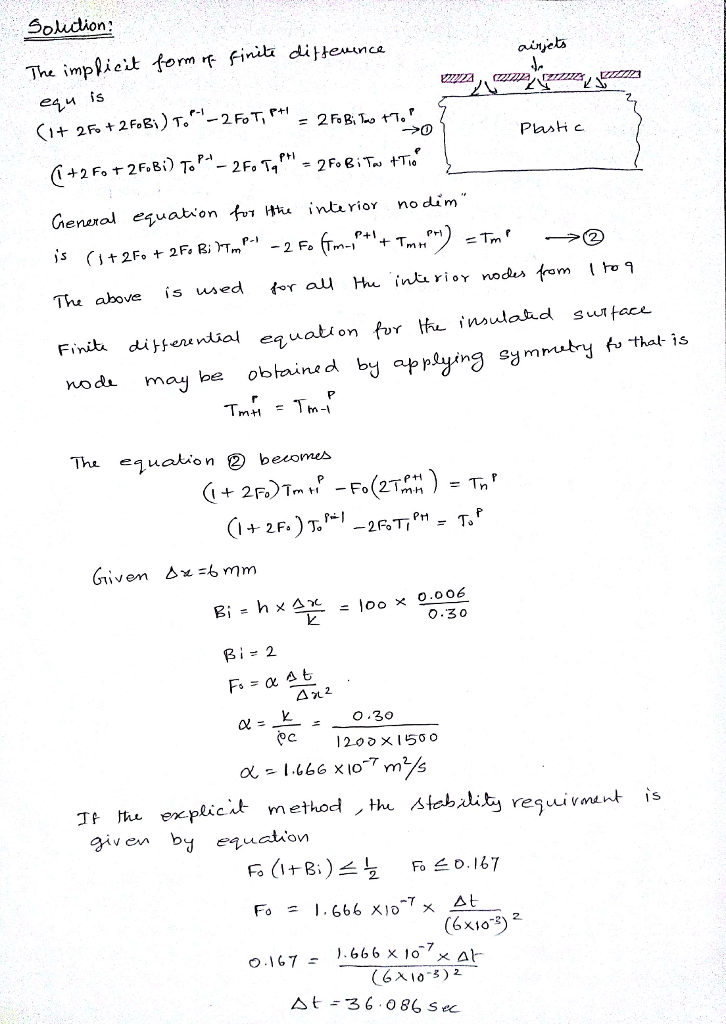 Solution:
The implicit form of finite difference
equ is
(1+ 2Fo + 2FoBi) T₀ᴾ⁻¹ - 2FoT₁ᴾ⁺¹ = 2FoBi T∞ + T₀ᴾ →①
(1+2Fo + 2FoBi) T₀ᴾ⁻¹ - 2Fo T₉ᴾ⁺¹ = 2FoBiT∞ +T₁₀ᴾ
airjets
Plastic
General equation for the interior nodim"
is (1+2Fo + 2Fo Bi)Tmᴾ⁻¹ - 2 Fo (Tm-1ᴾ⁺¹ + Tm+1ᴾ⁺¹) = Tmᴾ →②
The above is used for all the interior nodes from 1 to 9
Finite differential equation for the insulated surface
node may be obtained by applying symmetry fo that is
Tm+1ᴾ = Tm-1ᴾ
The equation ② becomes
(1+ 2Fo)Tm+1ᴾ - Fo(2Tm+1ᴾ⁺¹) = Tnᴾ
(1+2Fo) T₀ᴾ⁺¹ - 2FoT₁ᴾ⁺¹ = T₀ᴾ
Given Δx = 6 mm
Bi = h x Δx/k = 100 x 0.006/0.30
Bi = 2
Fo = α Δt/Δx²
α = k/ρc = 0.30/1200 X 1500
α = 1.666 X10⁻⁷ m²/s
If the explicit method, the stability requirment is
given by equation
Fo (1+Bi) ≤ 1/2 Fo ≤ 0.167
Fo = 1.666 X10⁻⁷ x Δt/(6x10⁻³)²
0.167 = 1.666 x 10⁻⁷ x Δt/(6X10⁻³)²
Δt = 36.086 Sec